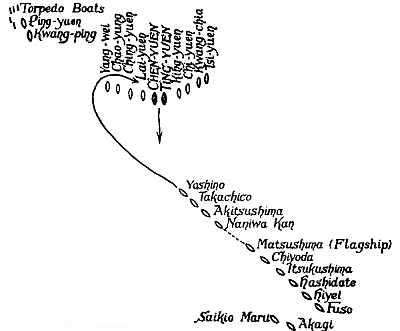 Torpedo Boats
Ping-yuen
Kwang-ping
Yang-wei
Chao-yung
Ching-yuen
Lai-yuen
CHEN-YUEN
TING-YUEN
King-yuen
Chi-yuen
Kwang-chia
Tsi-yuen
Yoshino
Takachico
Akitsushima
Naniwa Kan
Matsushima (Flagship)
Chiyoda
Itsukushima
Hashidate
Hiyei
Fuso
Saikio Maru
Akagi